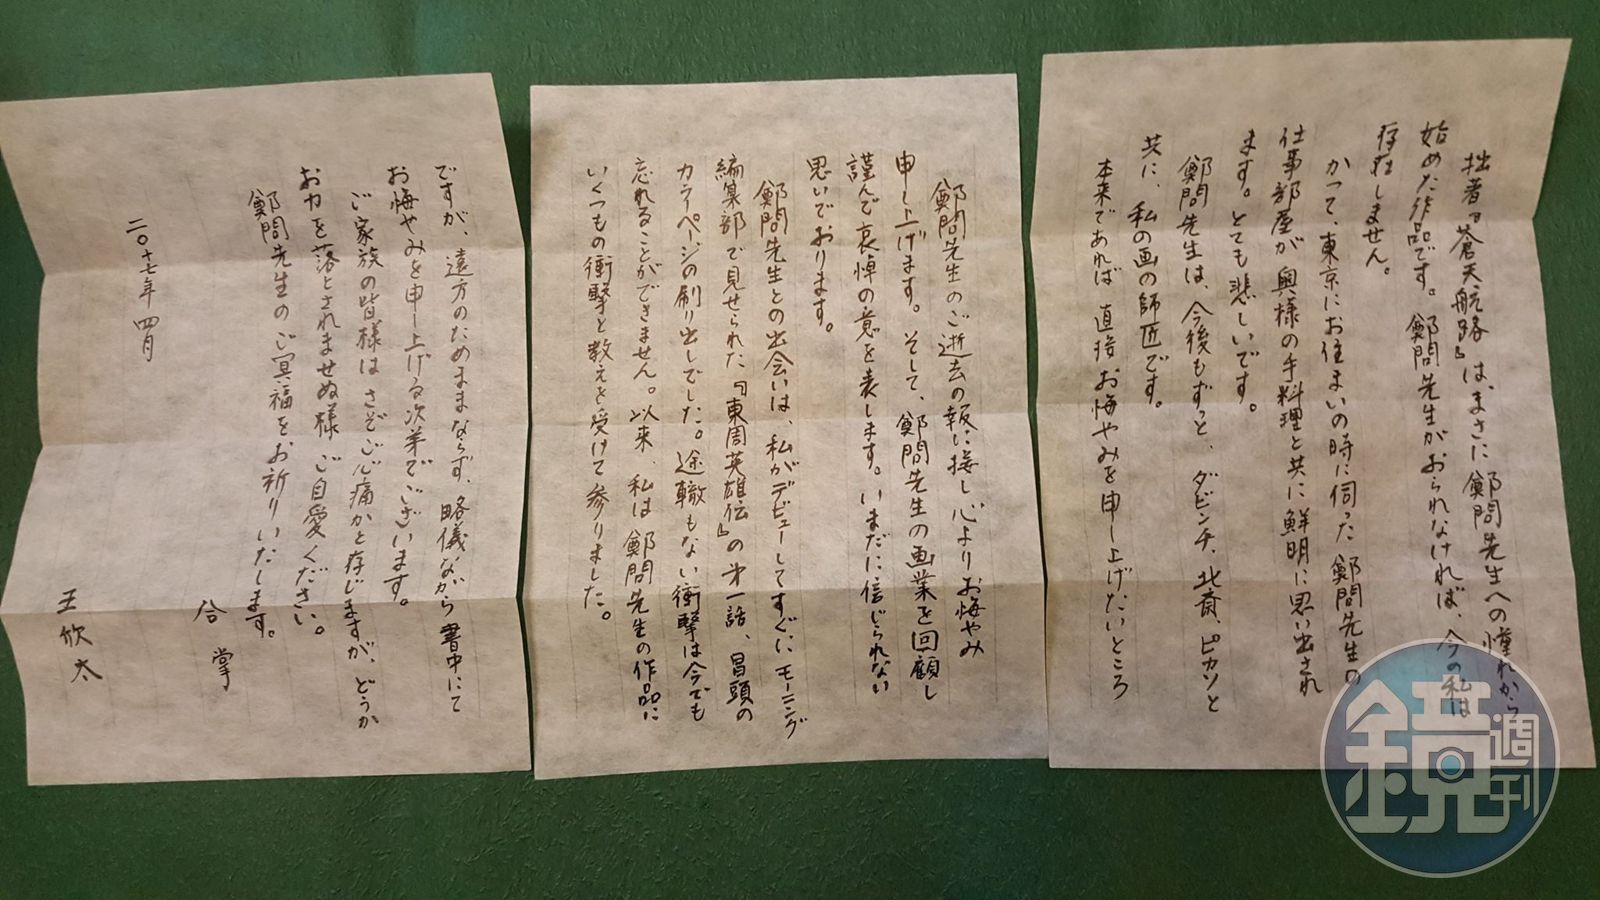 鄭問先生のご逝去の報に接し心よりお悔やみ
申し上げます。そして、鄭問先生の画業を回顧し
謹んで哀悼の意を表します。いまだに信じられない
思いでおります。
鄭問先生との出会いは、私がデビューしてすぐにモーニング
編集部で見せられた『東周英雄伝』の第一話、冒頭の
カラーページの刷り出しでした。途轍もない衝撃は今でも
忘れることができません。以来、私は鄭問先生の作品に
いくつもの衝撃と教えを受けて参りました。
拙著『蒼天航路』は、まさに鄭問先生への憧れから
始めた作品です。鄭問先生がおられなければ、今の私は
存在しません。
かつて、東京にお住まいの時に伺った鄭問先生の
仕事部屋が奥様の手料理と共に鮮明に思い出され
ます。とても悲しいです。
鄭問先生は、今後もずっと、ダビンチ、北斎、ピカソと
共に、私の画の師匠です。
本来であれば直接お悔やみを申し上げたいところ
ですが、遠方のためままならず、略儀ながら書中にて
お悔やみを申し上げる次第でございます。
ご家族の皆様はさぞご心痛かと存じますが、どうか
お力を落とされませぬ様ご自愛ください。
鄭問先生のご冥福をお祈りいたします。
合掌
二〇十七年 四月
王欣太
鏡週刊